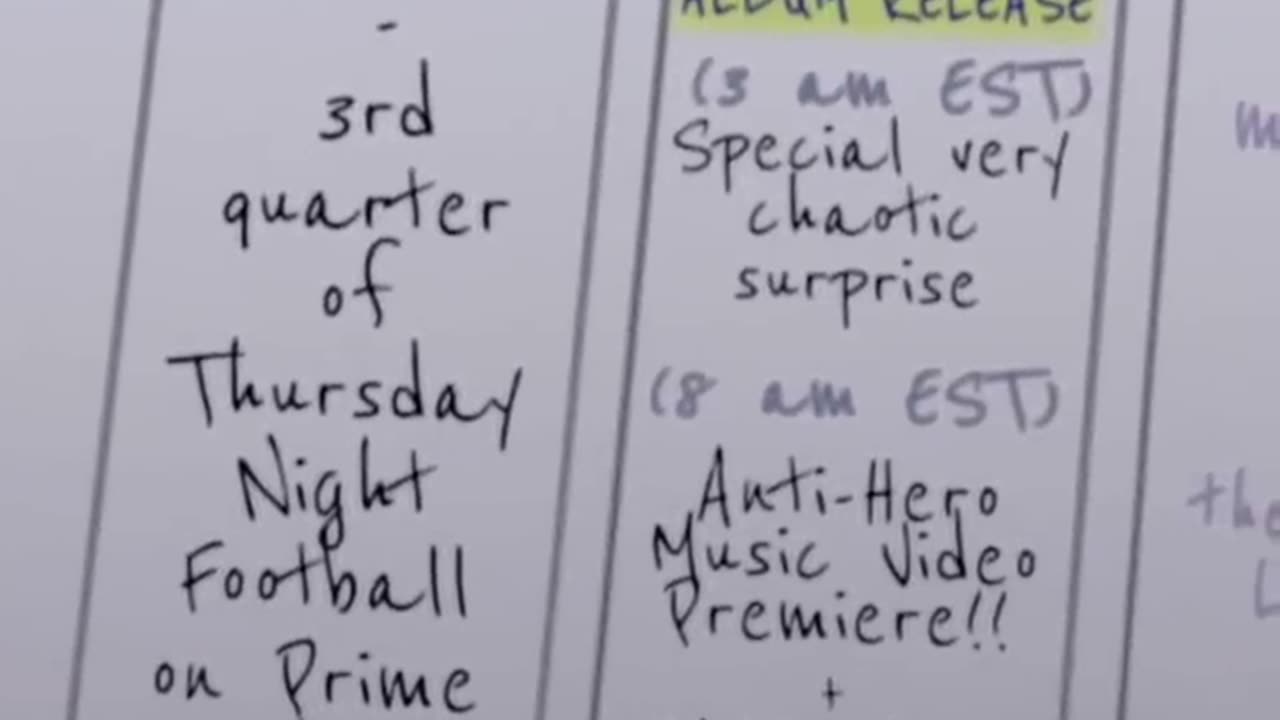 -
3rd
quarter
of
Thursday
Night
Football
on Prime
ALBUM RELEASE
(3 am EST)
Special very
chaotic
surprise
(8 am EST)
Anti-Hero
Music Video
Premiere!!
+
the